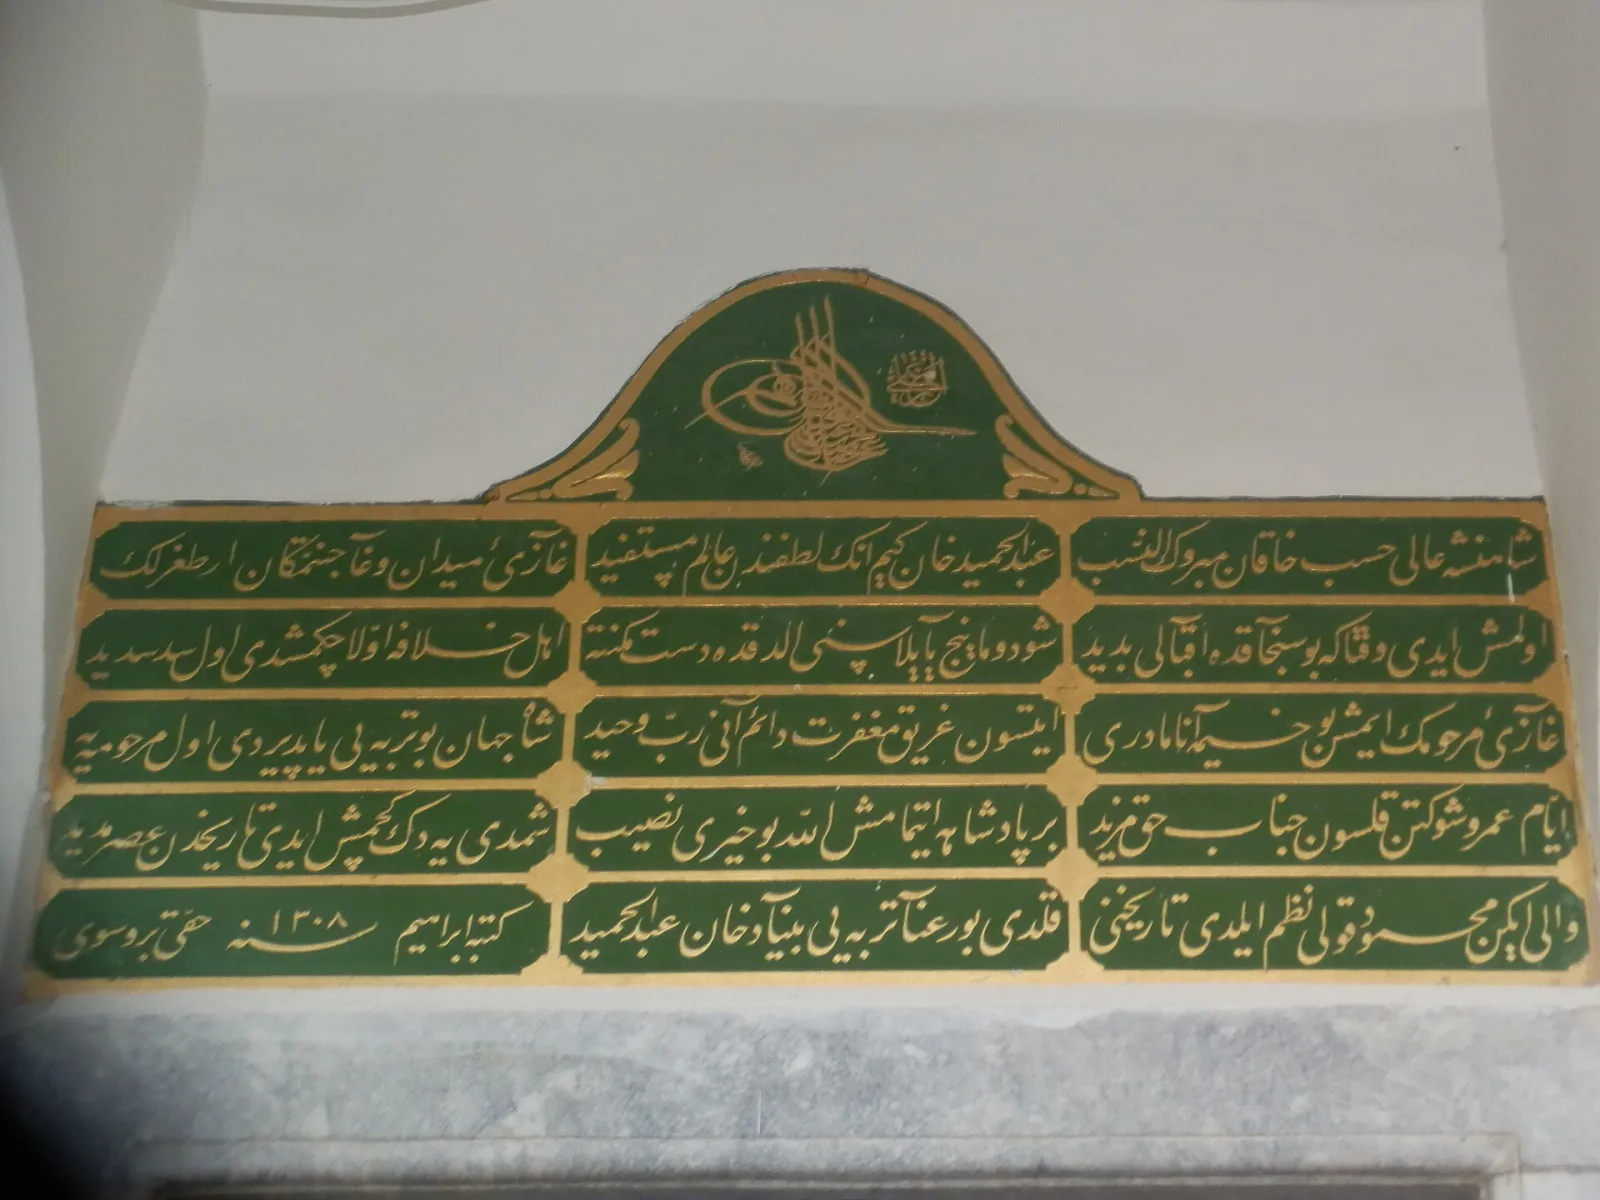 شاهنشه عالی حسب خاقان مبروك النسب
عبدالحمید خان کیم انك لطفندن عالم مستفید
غازیٔ میدان وغا جنتمکان ارطغرلك
اولمش ایدی وقتاکه بو سنجاقده اقبالی بدید
اهل خلافه اولا چکمشدی اول سد سدید
غازیٔ مرحومك ایمش بو خیمه آنا مادری
ایتسون غریق مغفرت دائم آنی رب وحید
شاه جهان بو تربه یی یاپدیردی اول مرحومه یه
ایام عمر و شوکتن قلسون جناب حق مزید
بر پادشاهه ایتمامش الله بو خیری نصیب
شمدی یه دك کچمش ایدی تاریخدن عصر مدید
والی ایکن محمود قولی نظم ایلدی تاریخنی
قلدی بو رعنا تربه یی بنیاد خان عبدالحمید
کتبه ابراهیم حقی بروسوی سنه ١٣٠٨